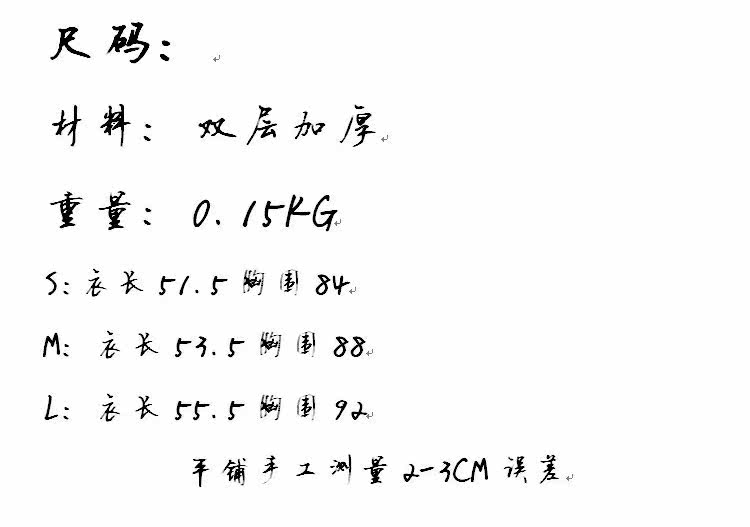 尺码：
材料：双层加厚
重量：0.15KG
S：衣长51.5胸围84
M：衣长53.5胸围88
L：衣长55.5胸围92
平铺手工测量2-3CM误差